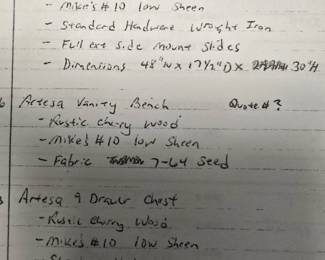 - Mike's #10 low Sheen
- Standard Hardware Wrought Iron
- Full ext side mount slides
- Dimentions 48"W x 17 1/2"D x 30"H
Artesa Vanity Bench Quote #?
- Rustic cherry wood
- Mike's #10 low Sheen
- Fabric 7-64 Seed
Artesa 9 Drawer Chest
- Rustic Cherry Wood
- Mike's #10 low Sheen